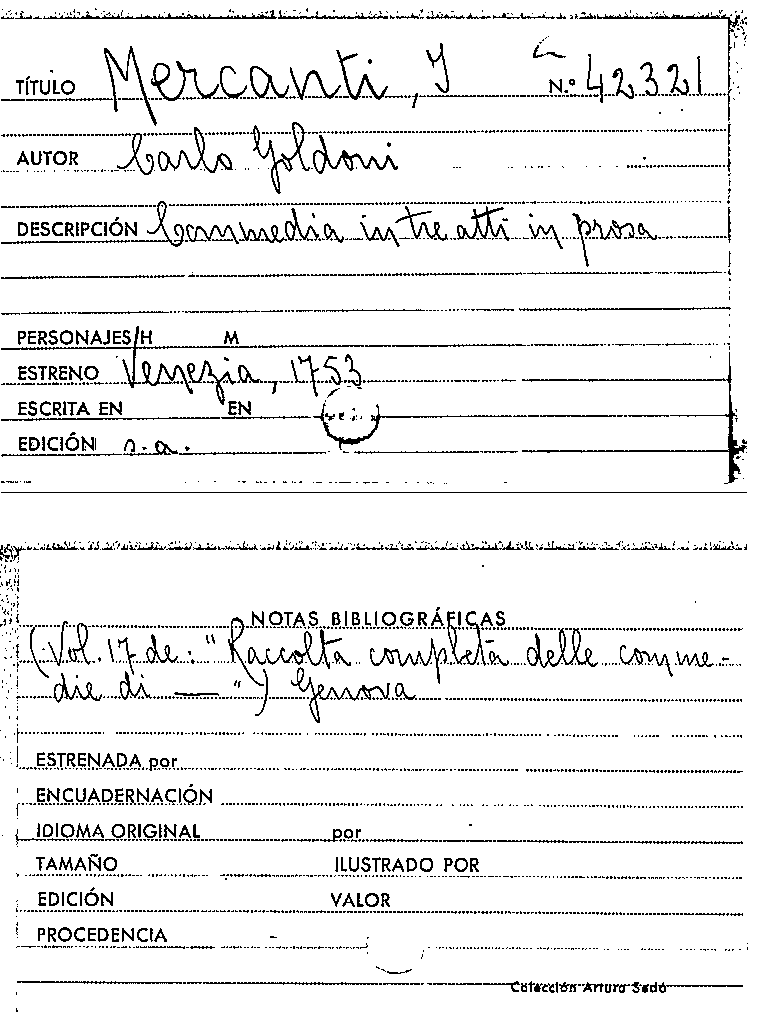 TÍTULO Mercanti, I N.º 42321
AUTOR Carlo Goldoni
DESCRIPCIÓN Commedia in tre atti in prosa
PERSONAJES/H M
ESTRENO Venezia, 1753
ESCRITA EN EN
EDICIÓN s.a.
NOTAS BIBLIOGRÁFICAS
(Vol. 17 de: "Raccolta completa delle comme-
die di — ") Genova
ESTRENADA por
ENCUADERNACIÓN
IDIOMA ORIGINAL por
TAMAÑO ILUSTRADO POR
EDICIÓN VALOR
PROCEDENCIA
Colección Arturo Sedó